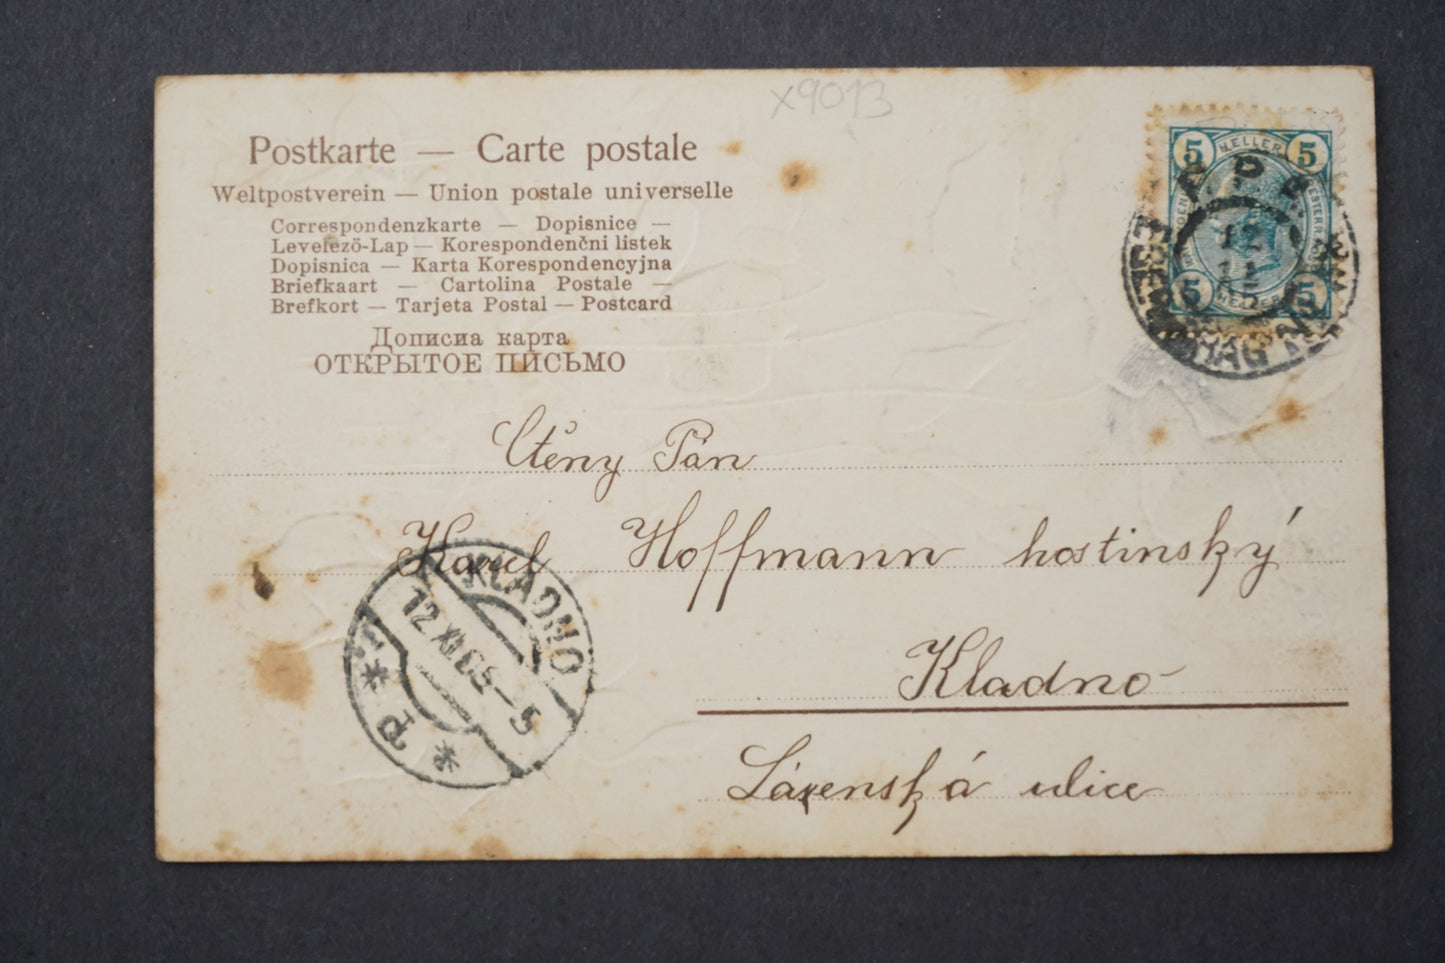 x9013
Postkarte — Carte postale
Weltpostverein — Union postale universelle
Correspondenzkarte — Dopisnice —
Levelező-Lap — Korespondenčni listek
Dopisnica — Karta Korespondencyjna
Briefkaart — Cartolina Postale —
Brefkort — Tarjeta Postal — Postcard
Дописна карта
ОТКРЫТОЕ ПИСЬМО
5 HELLER 5
5 HELLER 5
12
Ctěny Pán
Karel Hoffmann hostinský
Kladno
Lázenská ulice
KLADNO
12 XI 05—5